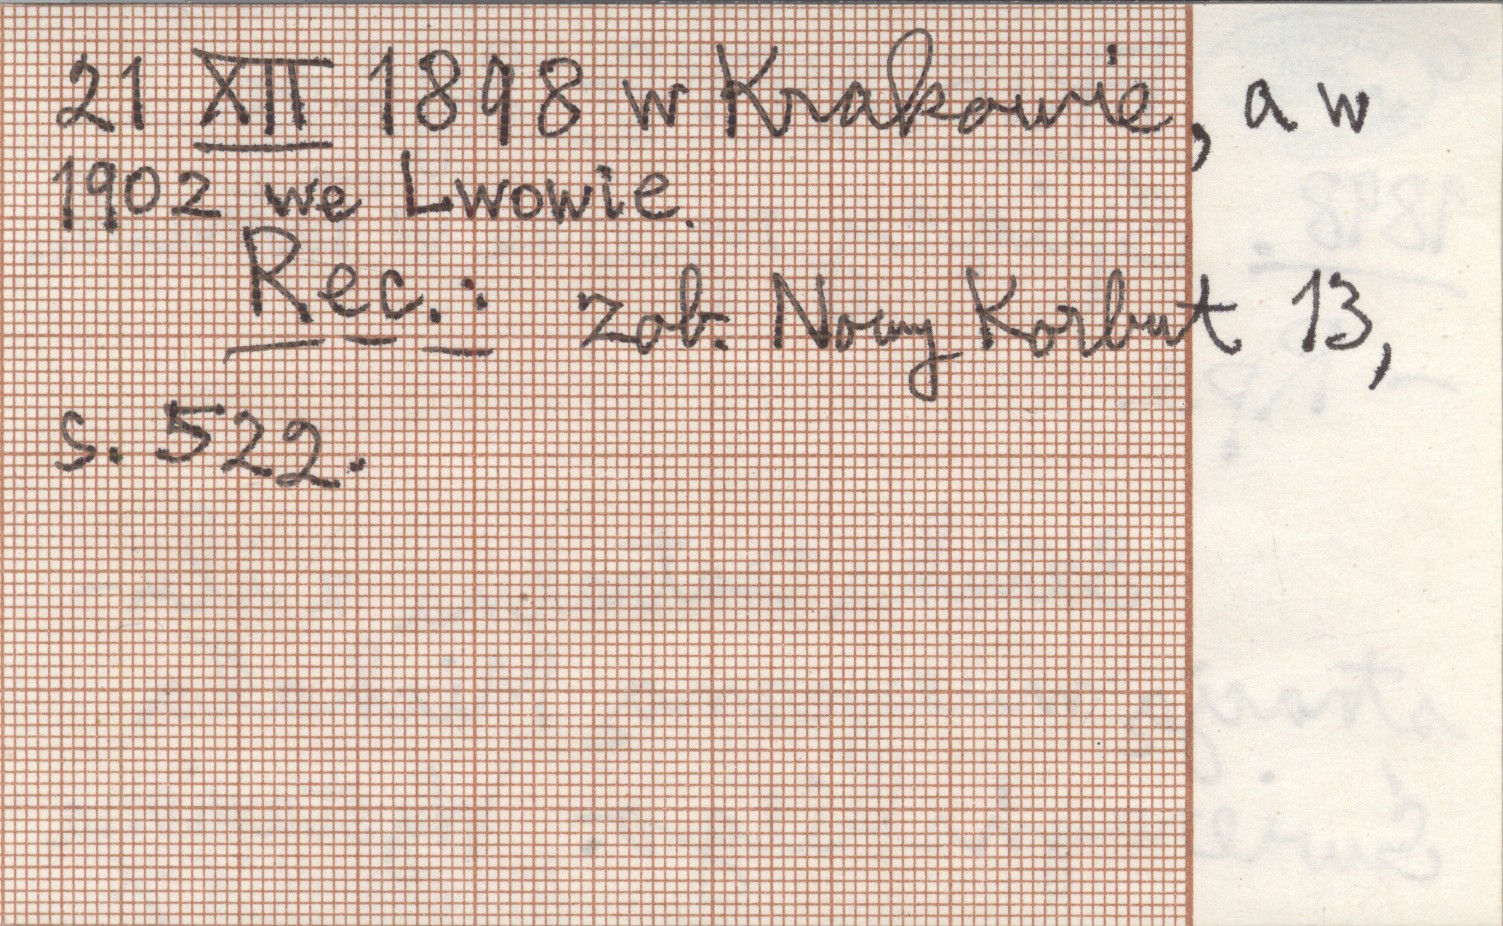 21 XII 1898 w Krakowie, a w
1902 we Lwowie.
Rec.: zob. Nowy Korbut 13,
s. 522.